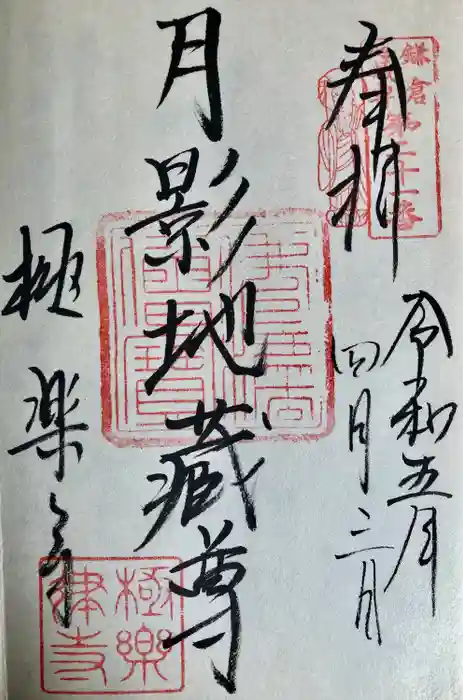 奉拝
鎌倉第二十一番
令和五年
四月三日
月影地蔵尊
極楽寺
極樂
律寺